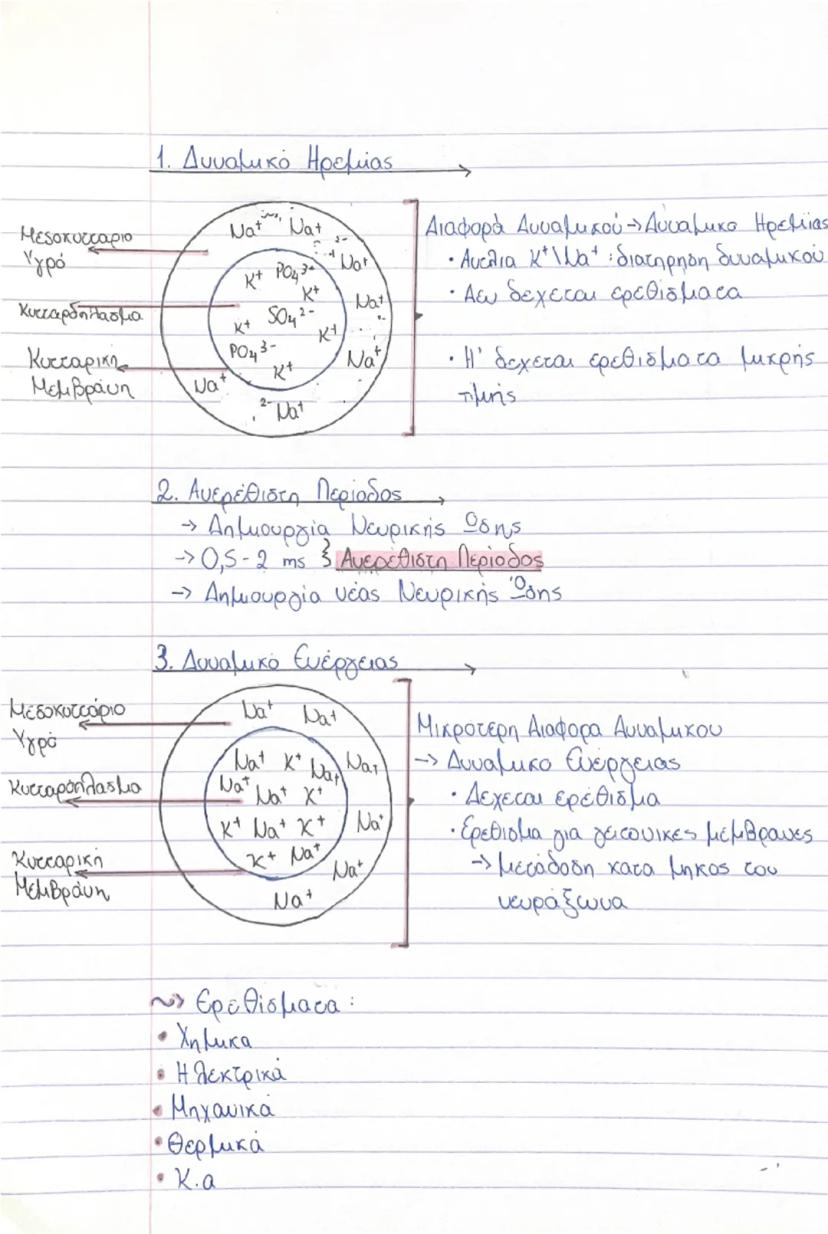 1. Δυναμικό Ηρεμίας
Μεσοκυττάριο
Υγρό
Κυτταρόπλασμα
Κυτταρική
Μεμβράνη
Na⁺ Na⁺
Na⁺
K⁺ PO₄³⁻
K⁺
Na⁺
K⁺ SO₄²⁻ K⁺
PO₄³⁻
K⁺
Na⁺
Na⁺
²⁻ Na⁺
Διαφορά Δυναμικού → Δυναμικο Ηρεμίας
· Αντλια K⁺\Na⁺ : διατηρηση δυναμικού
· Δεν δεχεται ερεθίσματα
· Η' δεχεται ερεθισματα μικρής
τιμής
2. Ανερέθιστη Περίοδος
→ Δημιουργία Νευρικής Ώσης
→ 0,5 - 2 ms } Ανερέθιστη Περίοδος
→ Δημιουργία νέας Νευρικής Ώσης
3. Δυναμικό Ενέργειας
Μεσοκυττάριο
Υγρό
Κυτταρόπλασμα
Κυτταρική
Μεμβράνη
Na⁺ Na⁺
Na⁺ K⁺ Na⁺ Na⁺
Na⁺ Na⁺ K⁺
K⁺ Na⁺ K⁺ Na⁺
K⁺ Na⁺ Na⁺
Na⁺
Μικρότερη Διαφορα Δυναμικου
→ Δυναμικο Ενέργειας
· Δεχεται ερέθισμα
· Ερεθισμα για γειτονικες μεμβρανες
→ μετάδοση κατα μηκος του
νευράξωνα
~> Ερεθίσματα :
• Χημικα
• Ηλεκτρικά
• Μηχανικά
• Θερμικά
• Κ.α